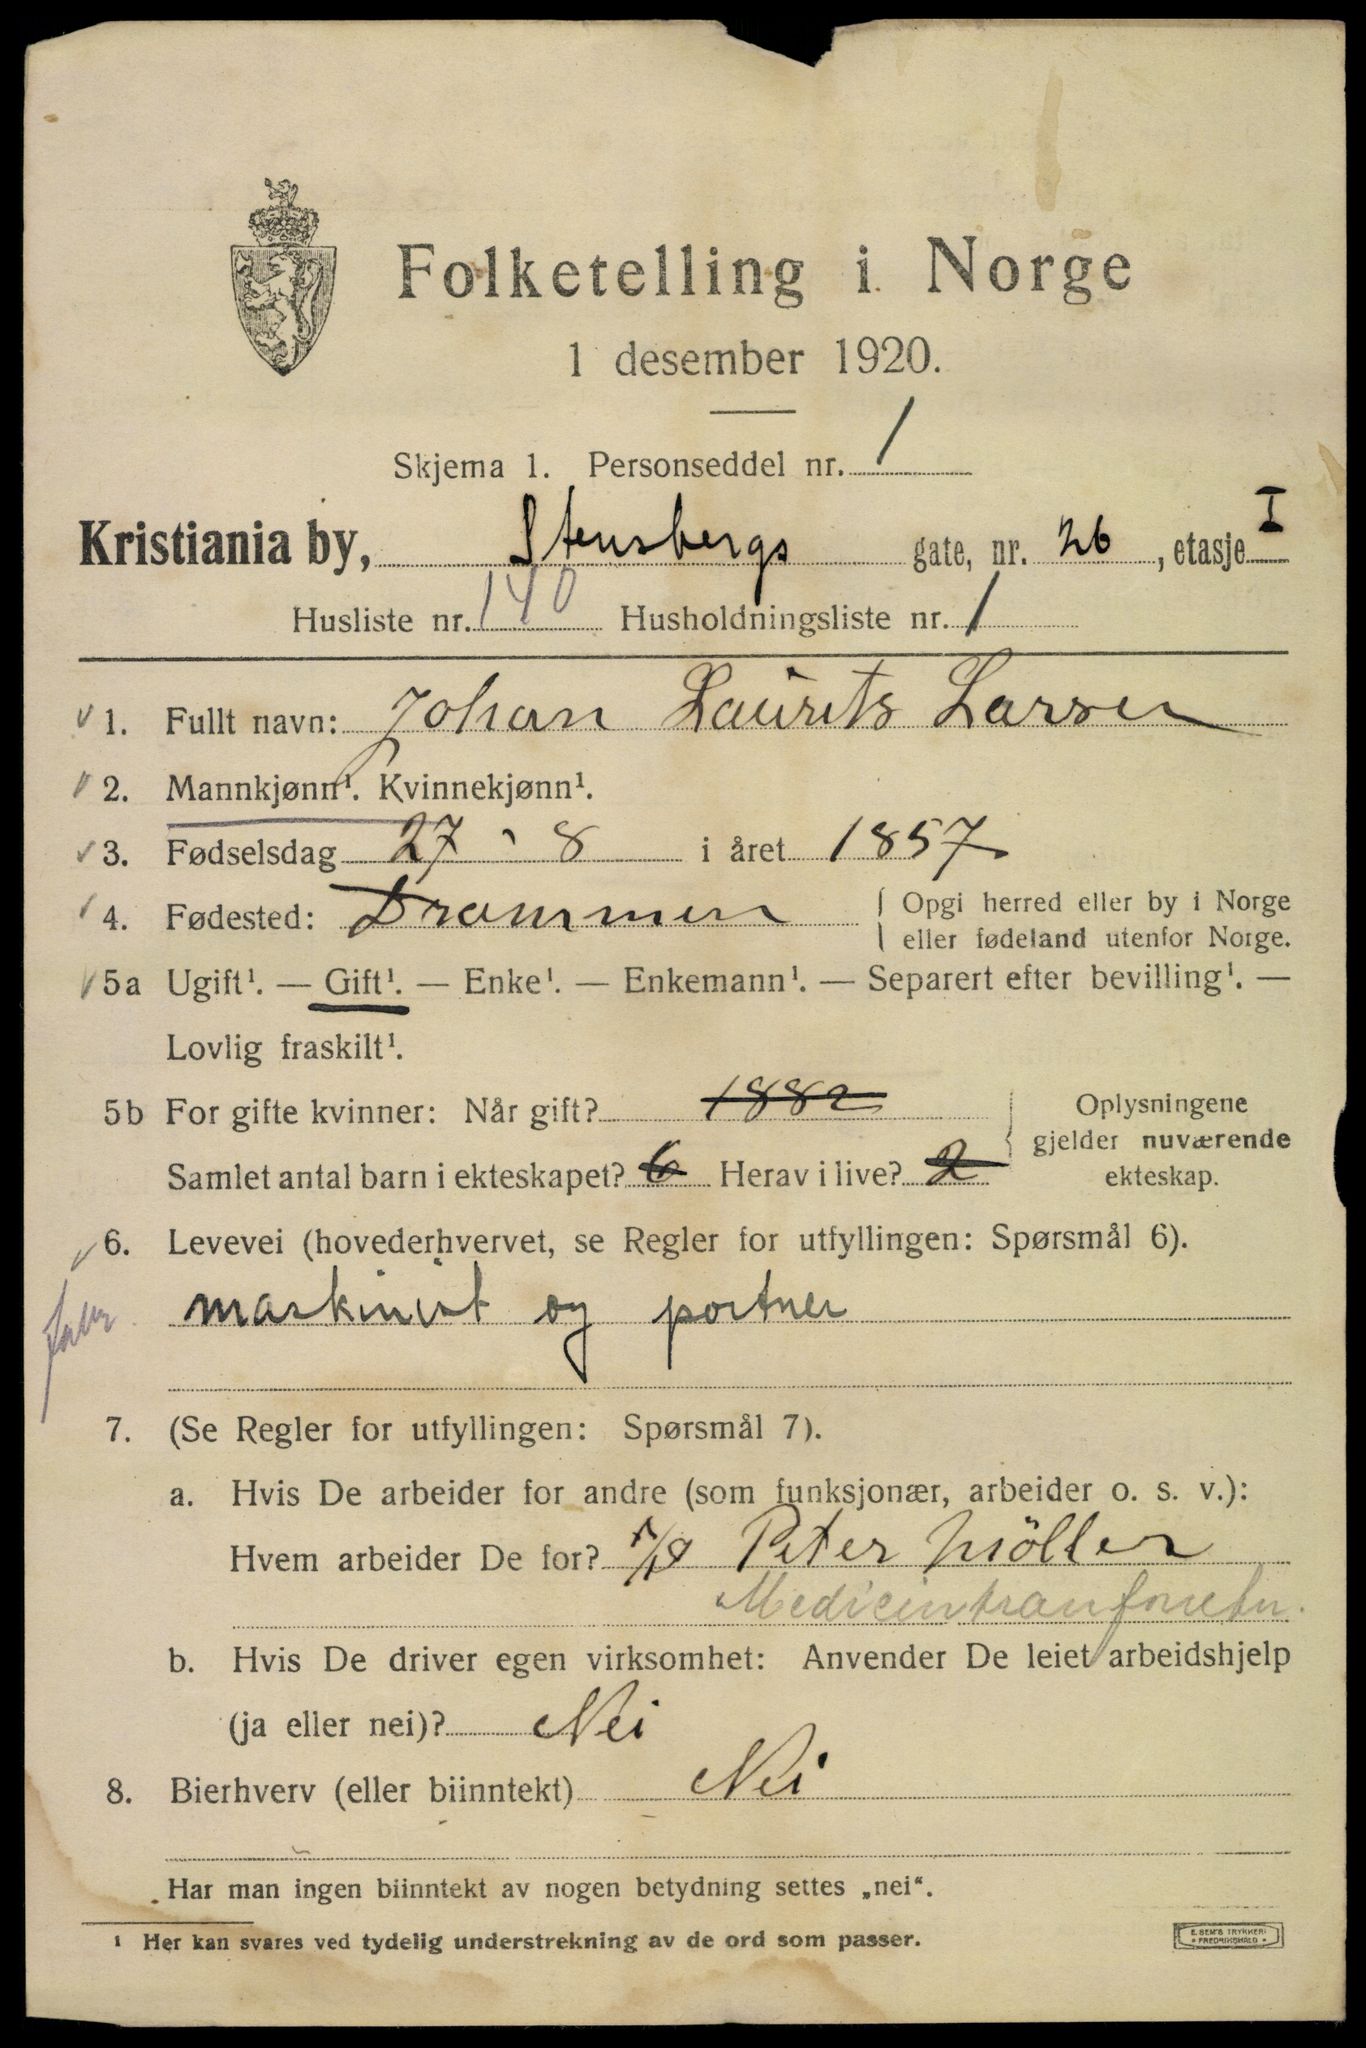 Folketelling i Norge
1 desember 1920.
Skjema 1. Personseddel nr. 1
Kristiania by, Stensbergs gate, nr. 26, etasje I
Husliste nr. 140 Husholdningsliste nr. 1
1. Fullt navn: Johan Laurits Larsen
2. Mannkjønn¹. Kvinnekjønn¹.
3. Fødselsdag 27 - 8 i året 1857
4. Fødested: Drammen { Opgi herred eller by i Norge
eller fødeland utenfor Norge.
5a Ugift¹. — Gift¹. — Enke¹. — Enkemann¹. — Separert efter bevilling¹. —
Lovlig fraskilt¹.
5b For gifte kvinner: Når gift? 1882
Samlet antal barn i ekteskapet? 6 Herav i live? 2
Oplysningene
gjelder nuværende
ekteskap.
6. Levevei (hovederhvervet, se Regler for utfyllingen: Spørsmål 6).
maskinist og portner
7. (Se Regler for utfyllingen: Spørsmål 7).
a. Hvis De arbeider for andre (som funksjonær, arbeider o. s. v.):
Hvem arbeider De for? A/S Peter Möller
Medicintran
b. Hvis De driver egen virksomhet: Anvender De leiet arbeidshjelp
(ja eller nei)? Nei
8. Bierhverv (eller biinntekt) Nei
Har man ingen biinntekt av nogen betydning settes „nei“.
¹ Her kan svares ved tydelig understrekning av de ord som passer.
E. SEM'S TRYKKERI
FREDRIKSHALD